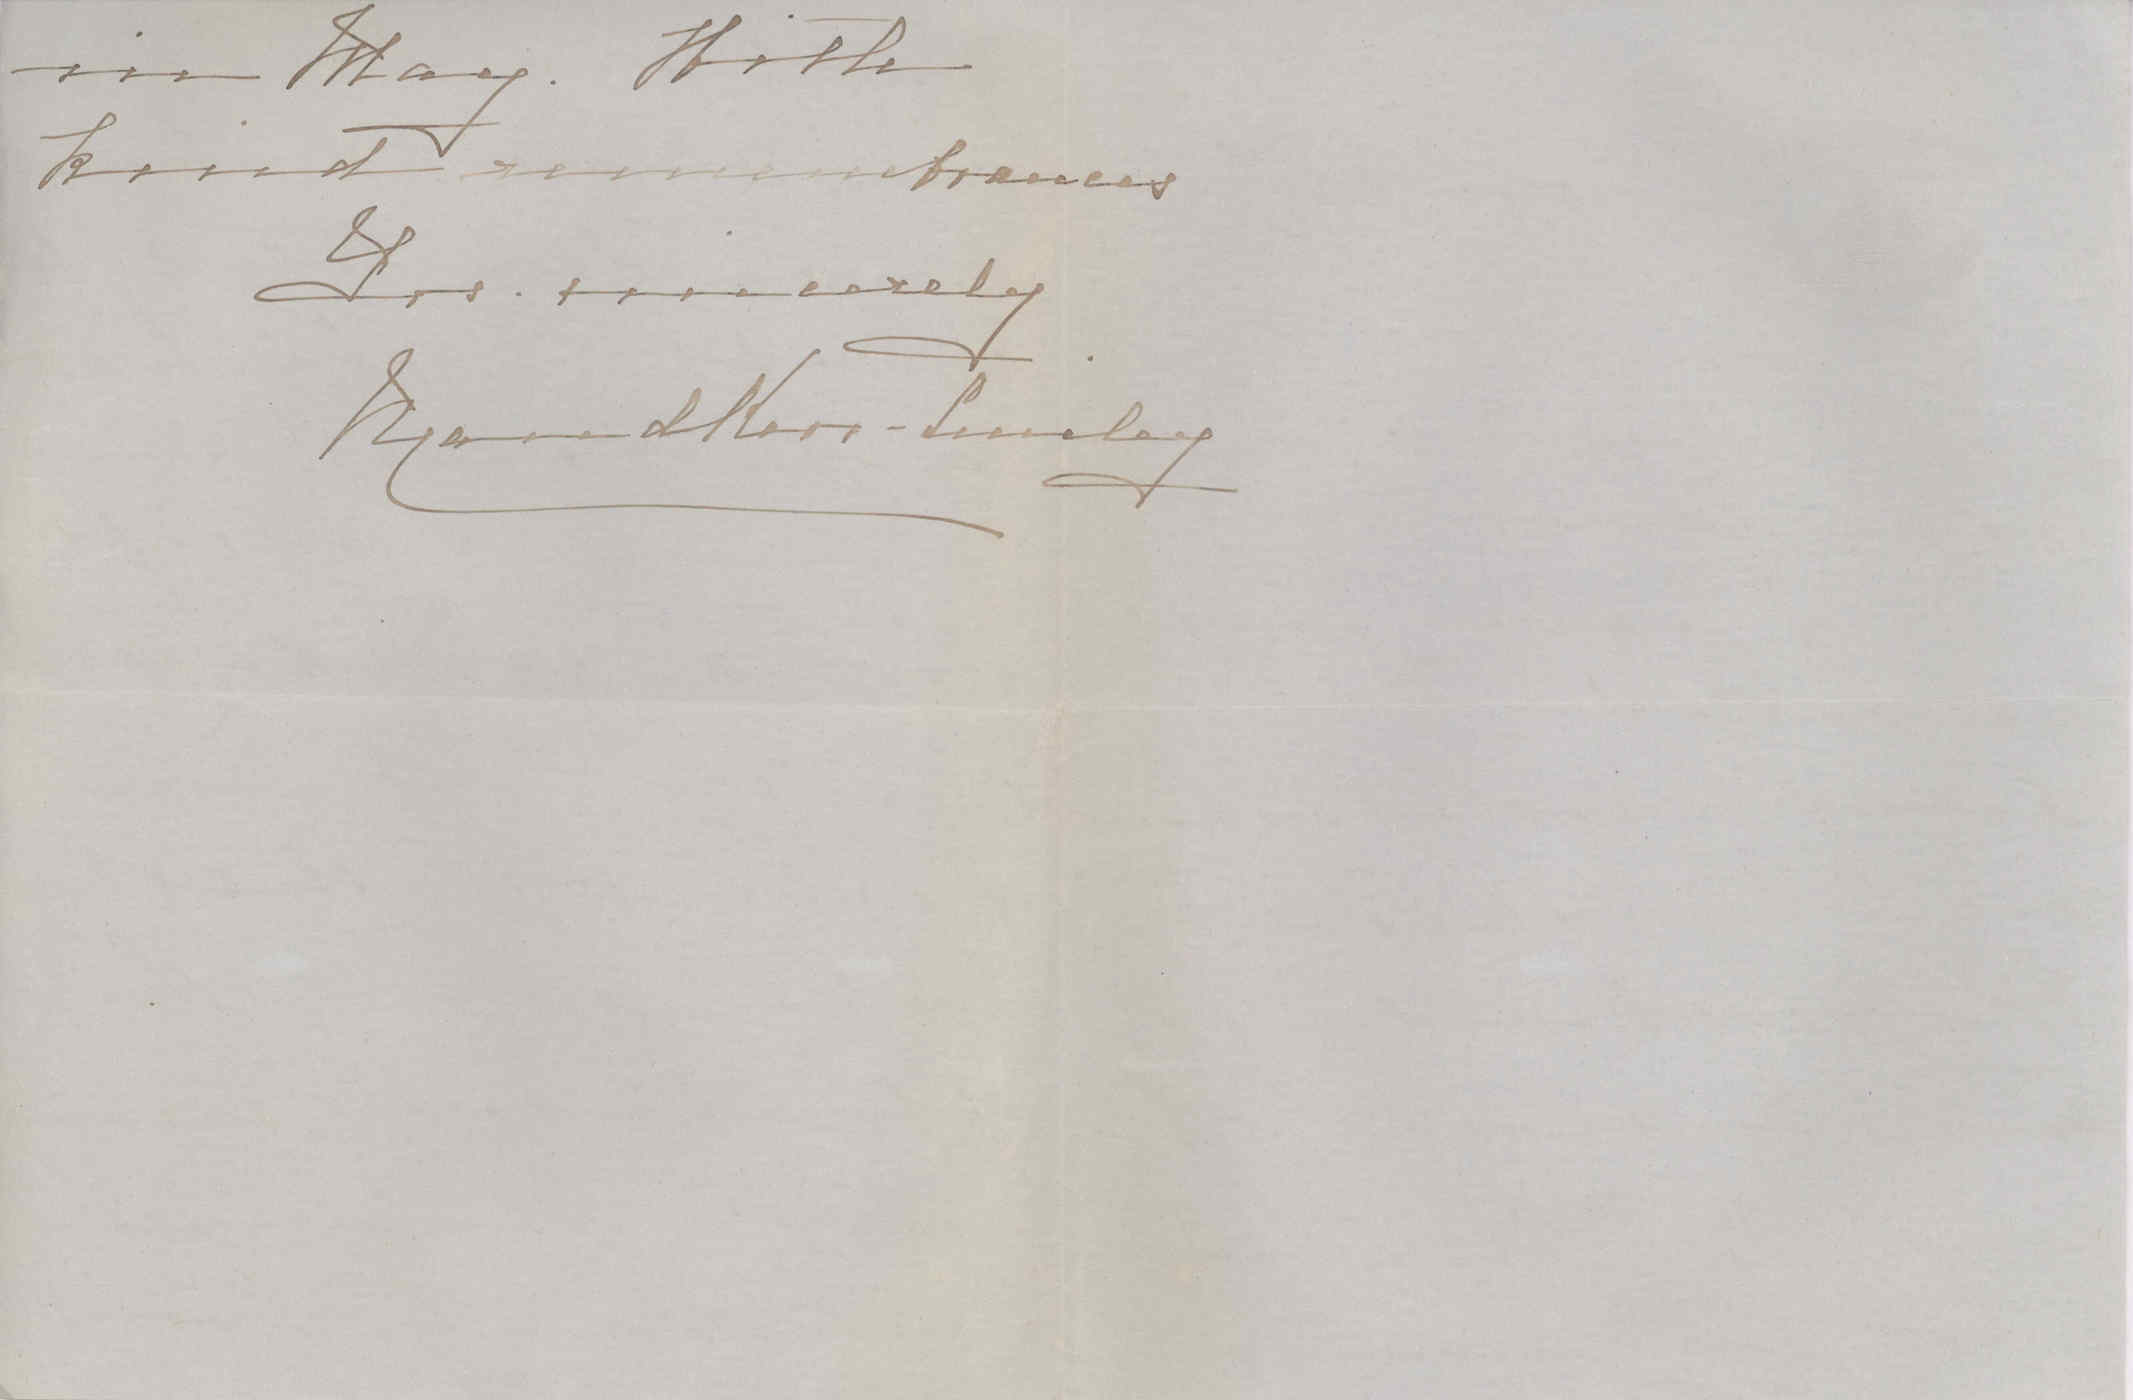 in May. With
kind remembrances
Yrs. sincerely
Maud Kerr-Smiley